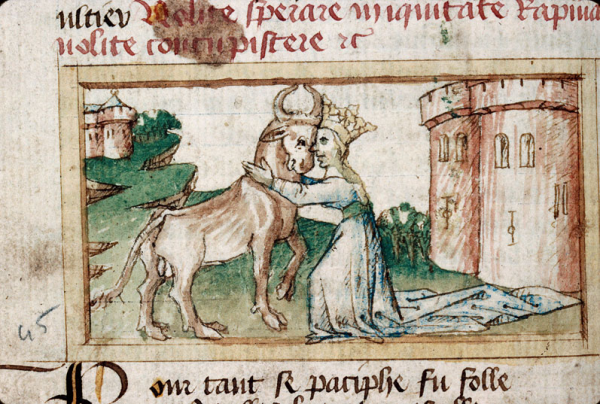 ultieu Nolite sperare iniquitate Rapina
nolite concupistere rc
45
Pour taut se paciphe fu folle